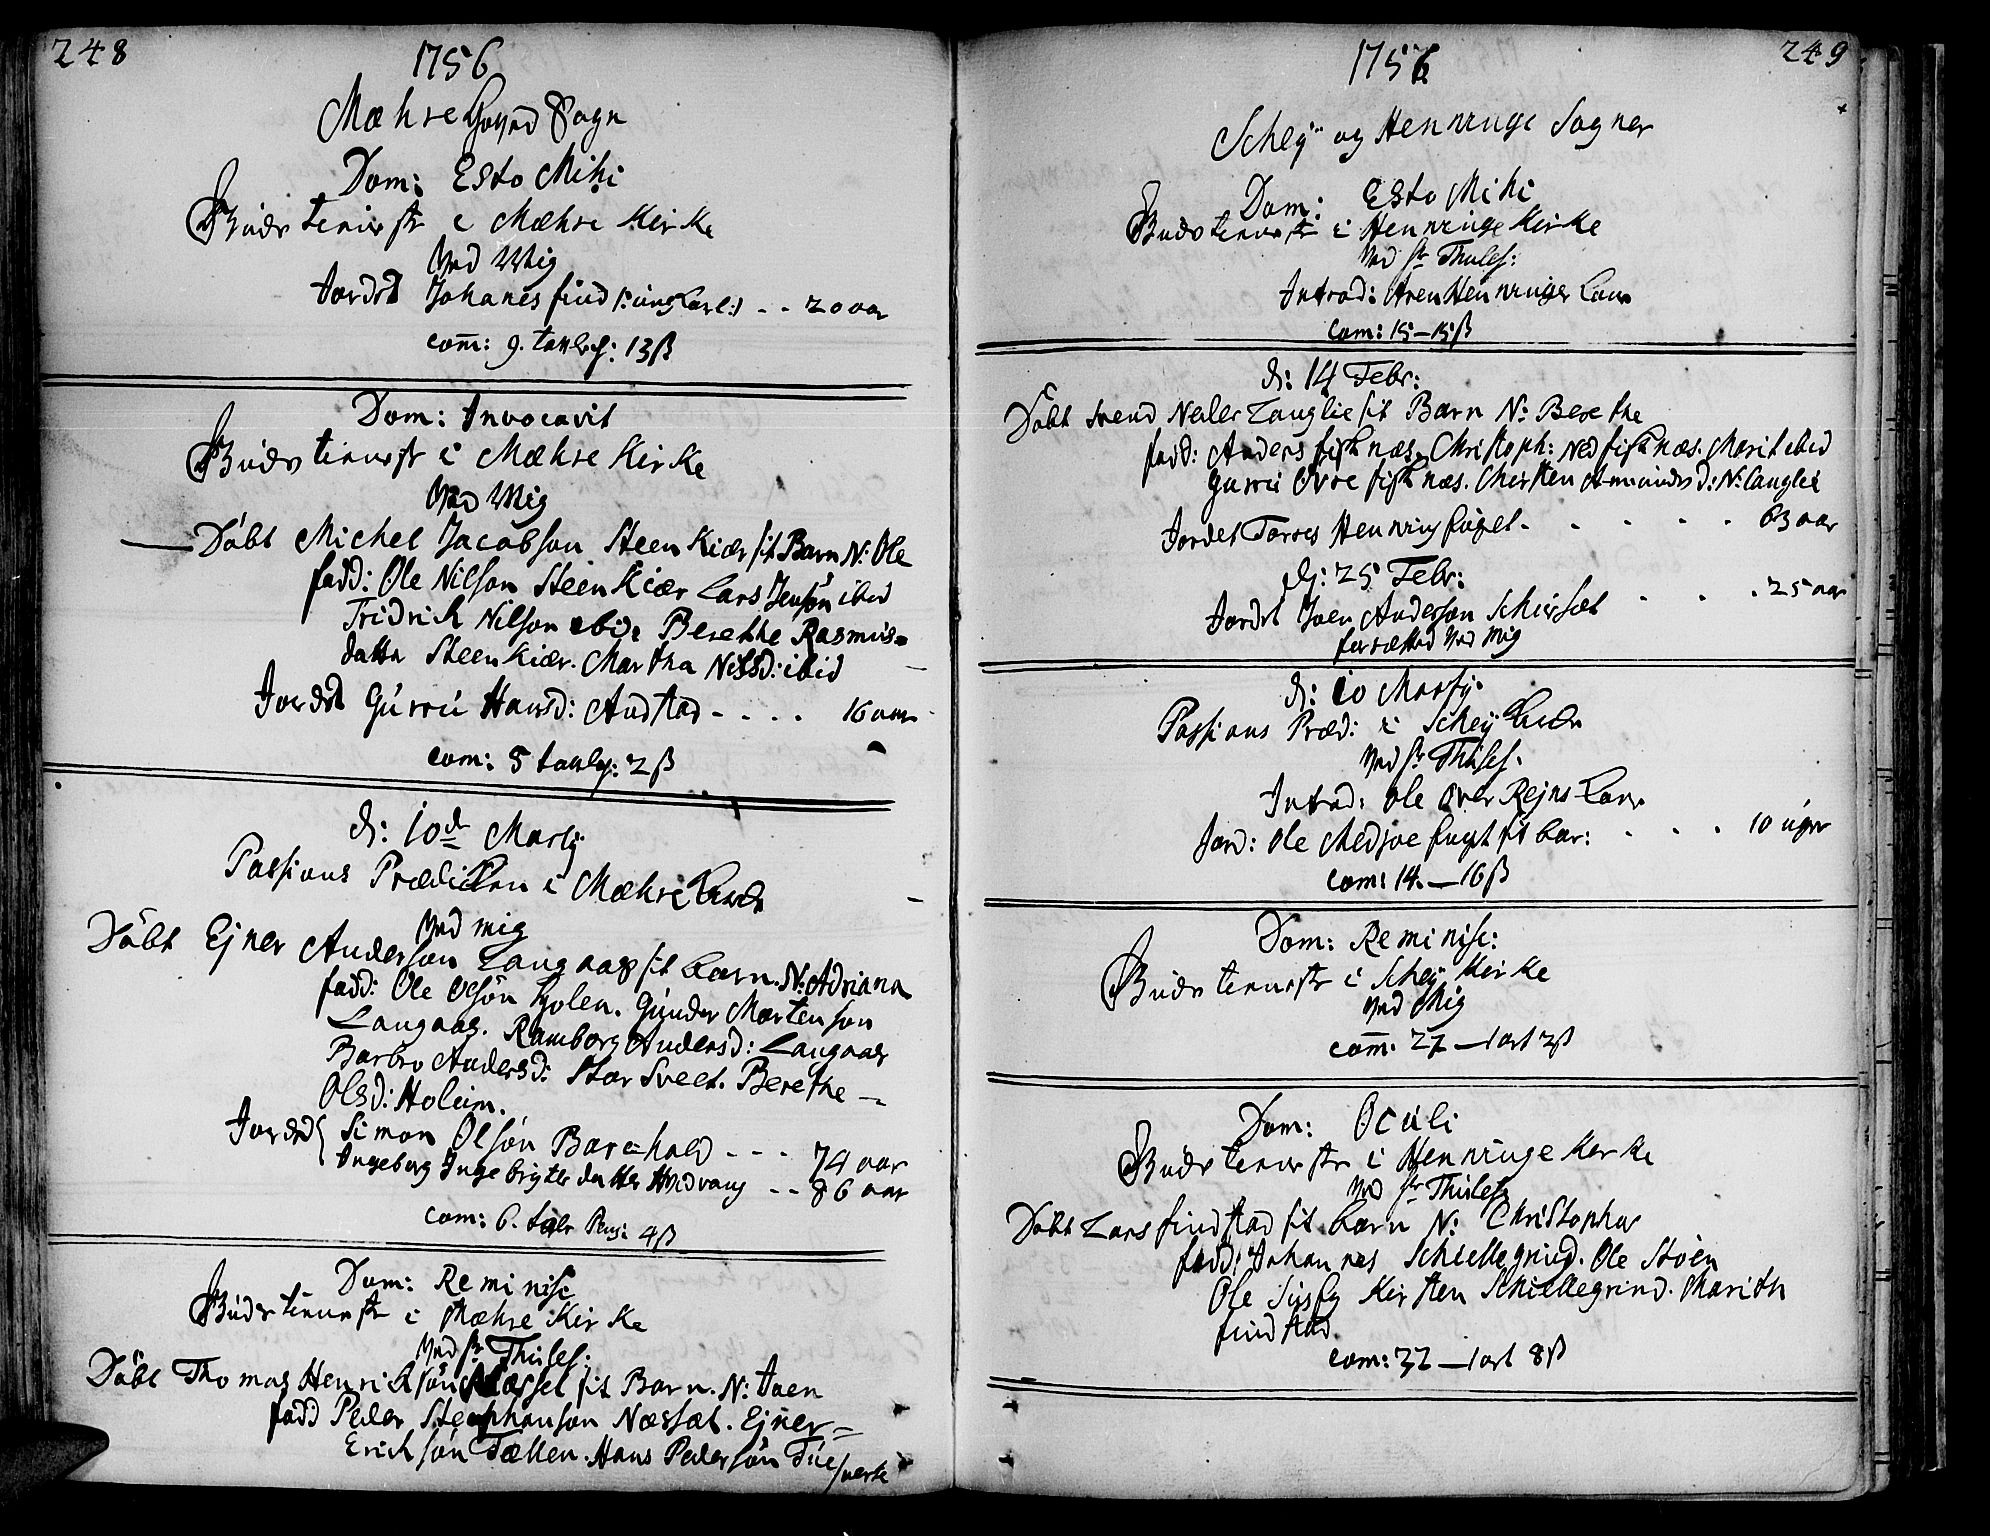 248
1756
Mæhre Hoved Sogn
Dom: Esto Mihi
Guds tieniest i Mæhre Kirke
Ved Mig
Jordet Johanes find /: ung Karl :/ - - 20 aar
com̄: 9. tavlep: 13 ß
Dom: Invocavit
Guds tieniest i Mæhre Kirke
Ved Mig
Döbt Michel Jacobson Steenkiær sit Barn N: Ole
fadd: Ole Nilson Steenkiær Lars Jensön ibid
Fridrich Nilson ibid Berethe Rasmus=
datter Steenkiær. Martha Nilsd: ibid
Jordet Gurru Hansd: Audstad - . . . 16 aar
com: 5 tavlep: 2 ß
d: 10de Martij
Passions Prædiken i Mæhre Kirke
Ved mig
Döbt Ejner Anderson Langaas sit barn. N: Adriana
fadd: Ole Olsön Holen. Gunder Mortenson
Langaas. Ramborg Andersd: Langaas
Barbro Andersd: Stor Sveet. Berethe
Olsd: Holeim.
Jordet { Simon Olsön Barehold - - - 74 aar
Ingeborg Ingebrigtes datter Hvidvang - - 86 aar
com: 6. tavle Peng: 4 ß
Dom: Reminisc
Guds tieniest i Mæhre Kirke
Ved Hr Thules:
Döbt Thomas Henrichsön Næsset sit Barn. N: Joen
fadd Peder Stephanson Næsset. Ejner=
Erichsön Tællen. Hans Pedersön Tue
sverke
249
1756
Schey og Henninge Sogner
Dom: Esto Mihi
Guds tieniest i Henninge Kirke
Ved Hr Thules:
Introd: Aren Henninges Kone
Com: 15 — 15 ß
d: 14 Febr:
Döbt Svend Neder Langlie sit Barn N: Berethe
fadd: Anders fisknæs. Christoph: Ned fisknæs. Marit ibid
Gurru Övre fisknæs. Chirsten Amundsd: N: Langlie
Jordet Torres Henning - . . . . 63 aar
d: 25 Febr:
Jordet Joen Anderson Schiersæt . . . 25 aar
forrætted Ved Mig
d: 10 Martij
Passions Præd: i Schey Kirke
Ved Hr Thules.
Introd: Ole Over Rejns Kone
Jord: Ole Medjoe sit bar: . . . 10 uger
com: 14. — 16 ß
Dom: Reminisc:
Guds tieniest i Schey Kirke
Ved Mig
com̄: 27 — 1 ort 2 ß
Dom: Oculi
Guds tieniest i Henninge Kirke
Ved Hr Thules
Döbt Lars findstad sit barn N: Christopher
fadd: Johannes Schiellegrind. Ole Stöen
Ole Kirsten Schiellegrind. Marith
findstad.
com: 32 — 1 ort 8 ß